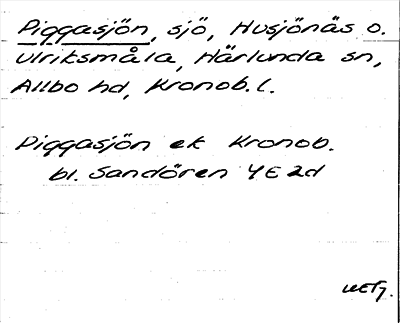 Piggasjön, sjö, Husjönäs o.
Ulriksmåla, Härlunda sn,
Allbo hd, Kronob. l.
Piggasjön ek Kronob.
bl. Sandören 4E 2d